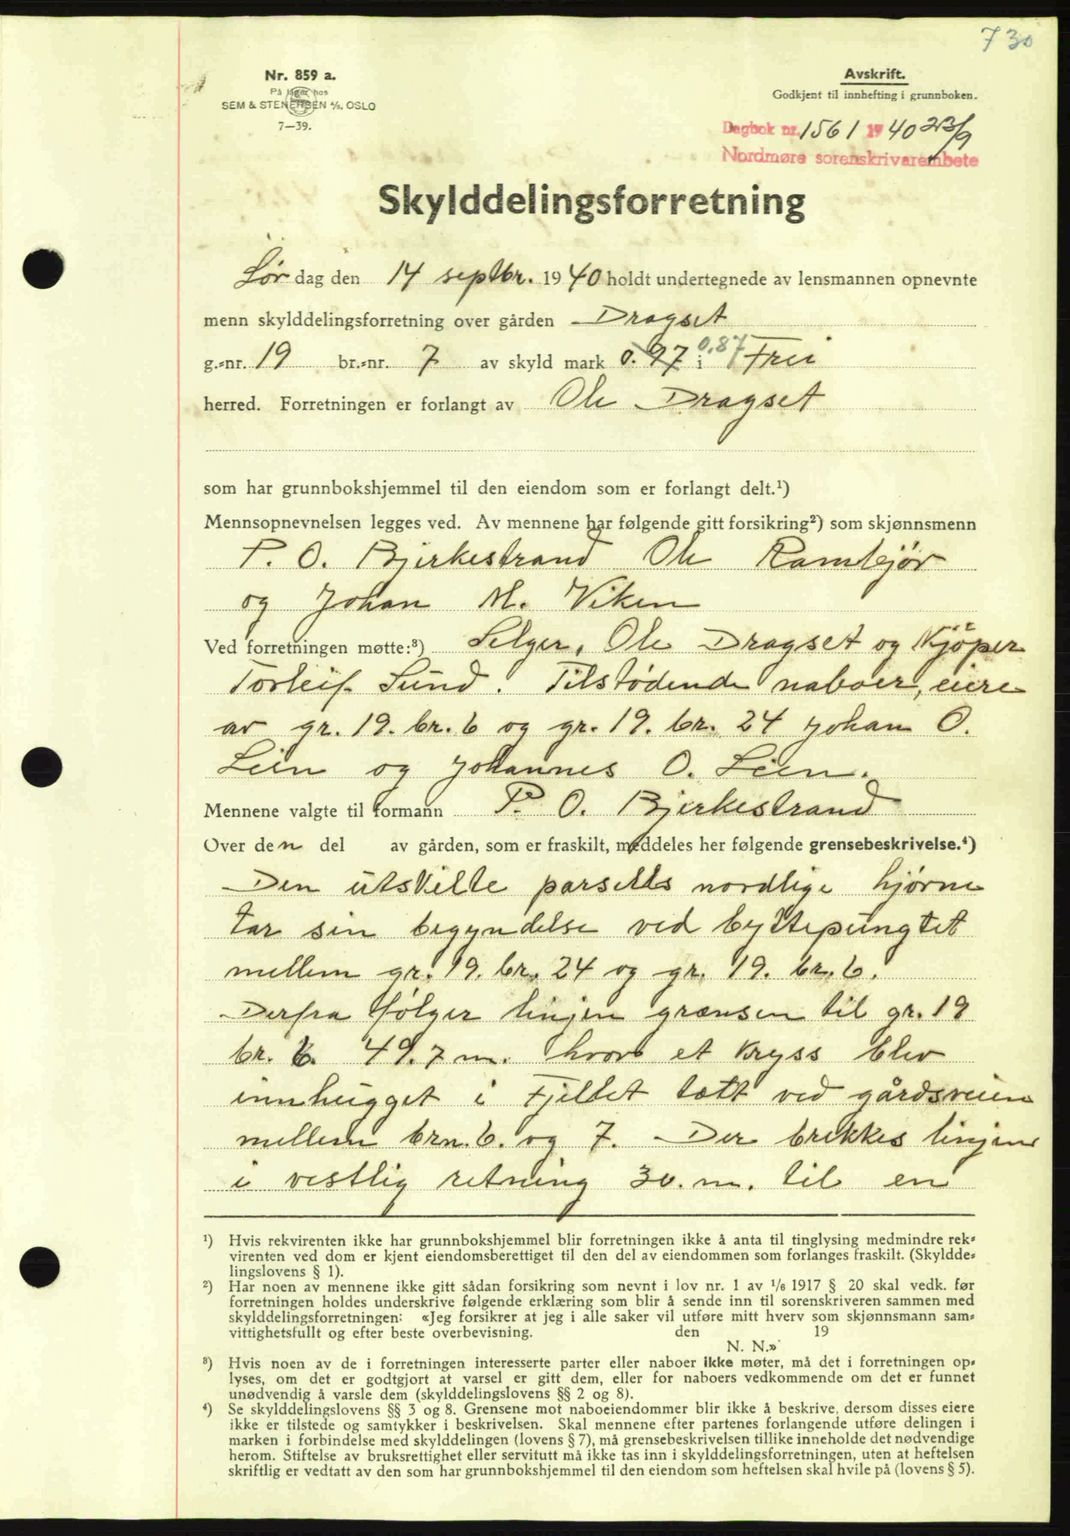 730
Nr. 859 a.
På lager hos
SEM & STENERSEN A/S. OSLO
7—39.
Avskrift.
Godkjent til innhefting i grunnboken.
Dagbok nr. 1561 1940 23/9
Nordmøre sorenskrivarembete
Skylddelingsforretning
Lørdag den 14 septbr. 1940 holdt undertegnede av lensmannen opnevnte
menn skylddelingsforretning over gården Dragset
g.-nr. 19 br.-nr. 7 av skyld mark 0.97 0.87 i Frei
herred. Forretningen er forlangt av Ole Dragset
som har grunnbokshjemmel til den eiendom som er forlangt delt.¹)
Mennsopnevnelsen legges ved. Av mennene har følgende gitt forsikring²) som skjønnsmenn
P. O. Bjerkestrand Ole Rambjör
og Johan M. Viken
Ved forretningen møtte:³) Selger, Ole Dragset og Kjöper
Torleif Sund. Tilstødende naboer, eiere
av gr. 19. br. 6 og gr. 19. br. 24 Johan O.
Leen og Johannes O. Leen.
Mennene valgte til formann P. O. Bjerkestrand
Over den del av gården, som er fraskilt, meddeles her følgende grensebeskrivelse.⁴)
Den utskilte parsells nordlige hjørne
tar sin begyndelse ved byttepungtet
mellem gr. 19. br. 24 og gr. 19. br. 6.
Derfra følger linjen grænsen til gr. 19
br. 6. 49.7 m. hvor et kryss blev
innhugget i Fjellet tætt ved gårdsveien
mellem brn. 6. og 7. Der brekkes linjen
i vestlig retning 30. m. til en
¹) Hvis rekvirenten ikke har grunnbokshjemmel blir forretningen ikke å anta til tinglysing medmindre rek-
virenten ved dom er kjent eiendomsberettiget til den del av eiendommen som forlanges fraskilt. (Skyldde-
lingslovens § 1).
²) Har noen av mennene ikke gitt sådan forsikring som nevnt i lov nr. 1 av 1/6 1917 § 20 skal vedk. før
forretningen holdes underskrive følgende erklæring som blir å sende inn til sorenskriveren sammen med
skylddelingsforretningen: «Jeg forsikrer at jeg i alle saker vil utføre mitt hverv som skjønnsmann sam-
vittighetsfullt og efter beste overbevisning. den 19
N. N.»
³) Hvis noen av de i forretningen interesserte parter eller naboer ikke møter, må det i forretningen op-
lyses, om det er godtgjort at varsel er gitt dem, eller for naboers vedkommende om det er funnet
unødvendig å varsle dem (skylddelingslovens §§ 2 og 8).
⁴) Se skylddelingslovens §§ 3 og 8. Grensene mot naboeiendommer blir ikke å beskrive, dersom disses eiere
ikke er tilstede og samtykker i beskrivelsen. Skal mennene efter partenes forlangende utføre delingen i
marken i forbindelse med skylddelingen (lovens § 7), må grensebeskrivelsen tillike inneholde det nødvendige
herom. Stiftelse av bruksrettighet eller servitutt må ikke tas inn i skylddelingsforretningen, uten at heftelsen
skriftlig er vedtatt av den som har grunnbokshjemmel til den eiendom som heftelsen skal hvile på (lovens § 5).